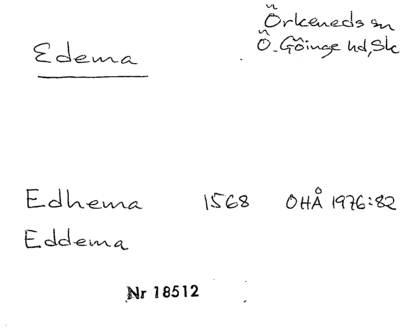 Edema
Örkeneds sn
Ö. Göinge hd, Sk
Edhema 1568 OHÅ 1976:82
Eddema
Nr 18512